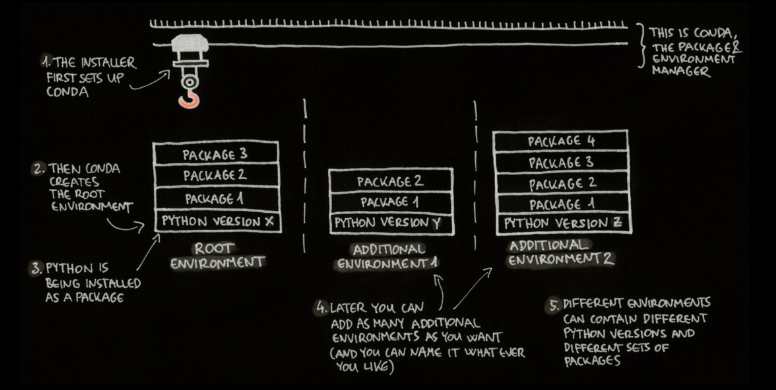 THIS IS CONDA,
THE PACKAGE &
ENVIRONMENT
MANAGER
1. THE INSTALLER
FIRST SETS UP
CONDA
2. THEN CONDA
CREATES
THE ROOT
ENVIRONMENT
3. PYTHON IS
BEING INSTALLED
AS A PACKAGE
PACKAGE 3
PACKAGE 2
PACKAGE 1
PYTHON VERSION X
ROOT
ENVIRONMENT
PACKAGE 2
PACKAGE 1
PYTHON VERSION Y
ADDITIONAL
ENVIRONMENT 1
PACKAGE 4
PACKAGE 3
PACKAGE 2
PACKAGE 1
PYTHON VERSION Z
ADDITIONAL
ENVIRONMENT 2
4. LATER YOU CAN
ADD AS MANY ADDITIONAL
ENVIRONMENTS AS YOU WANT
(AND YOU CAN NAME IT WHAT EVER
YOU LIKE)
5. DIFFERENT ENVIRONMENTS
CAN CONTAIN DIFFERENT
PYTHON VERSIONS AND
DIFFERENT SETS OF
PACKAGES